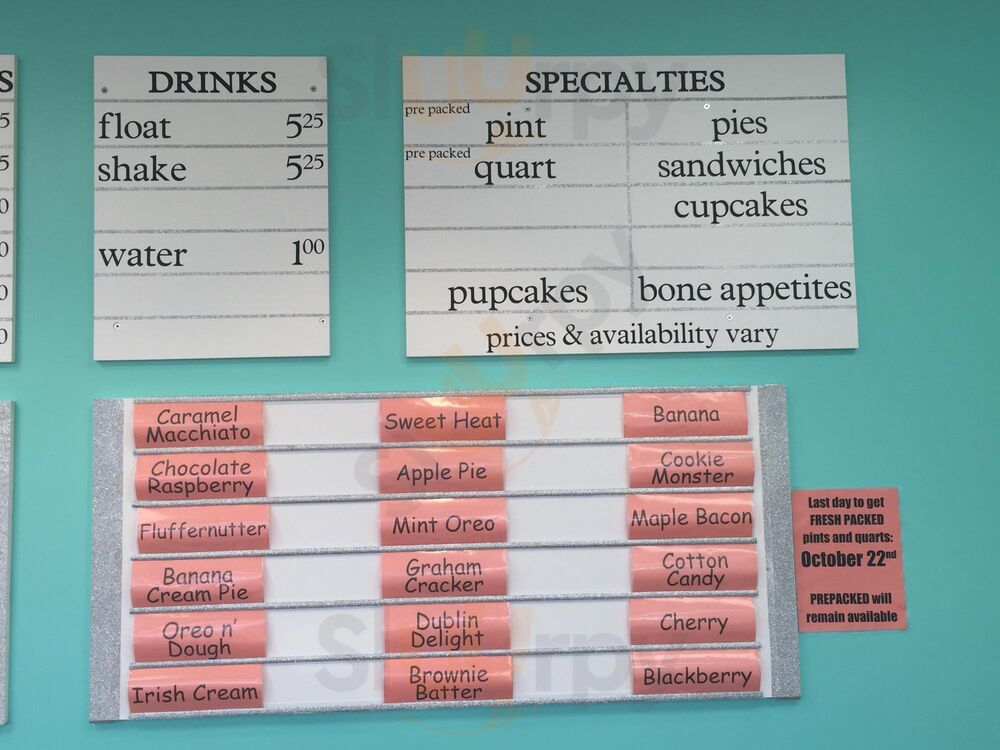 S
5
5
0
0
0
0
DRINKS
float 5²⁵
shake 5²⁵
water 1⁰⁰
SPECIALTIES
pre packed pint pies
pre packed quart sandwiches
cupcakes
pupcakes bone appetites
prices & availability vary
Caramel
Macchiato
Sweet Heat
Banana
Chocolate
Raspberry
Apple Pie
Cookie
Monster
Fluffernutter
Mint Oreo
Maple Bacon
Banana
Cream Pie
Graham
Cracker
Cotton
Candy
Oreo n'
Dough
Dublin
Delight
Cherry
Irish Cream
Brownie
Batter
Blackberry
Last day to get
FRESH PACKED
pints and quarts:
October 22ⁿᵈ
PREPACKED will
remain available
Sluurpy
Sluurpy
Sluurpy
Sluurpy